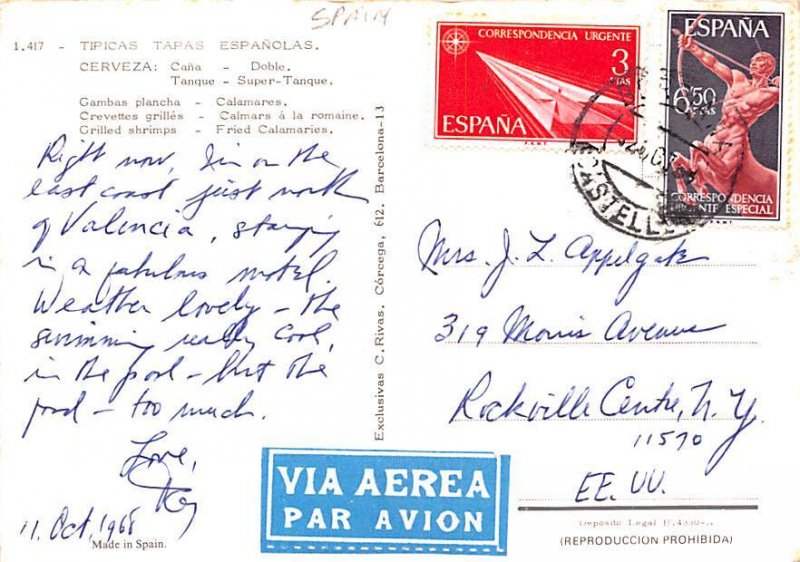 SPAIN
1.417 - TIPICAS TAPAS ESPAÑOLAS.
CERVEZA: Caña - Doble.
Tanque - Super-Tanque.
Gambas plancha - Calamares.
Crevettes grillés - Calmars à la romaine.
Grilled shrimps - Fried Calamaries.
Right now, I'm on the
east coast just north
of Valencia, staying
in a fabulous motel.
Weather lovely - the
swimming really cool,
in the pool - but the
food - too much.
Love,
Kay
11 Oct, 1968
Made in Spain.
Exclusivas C. Rivas. Córcega, 612. Barcelona-13
CORRESPONDENCIA URGENTE
3
PTAS
ESPAÑA
F.N.M.T.
ESPAÑA
6'50
PTAS
CORRESPONDENCIA
URGENTE ESPECIAL
CASTELL
Mrs. J. L. Applegate
319 Morris Avenue
Rockville Centre, N.Y.
11570
EE. UU.
VIA AEREA
PAR AVION
Depósito Legal B.
(REPRODUCCION PROHIBIDA)